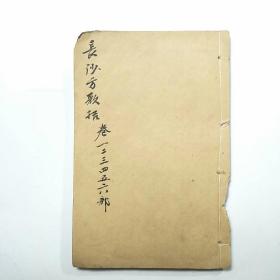 長沙方歌括 卷一二三四五六部